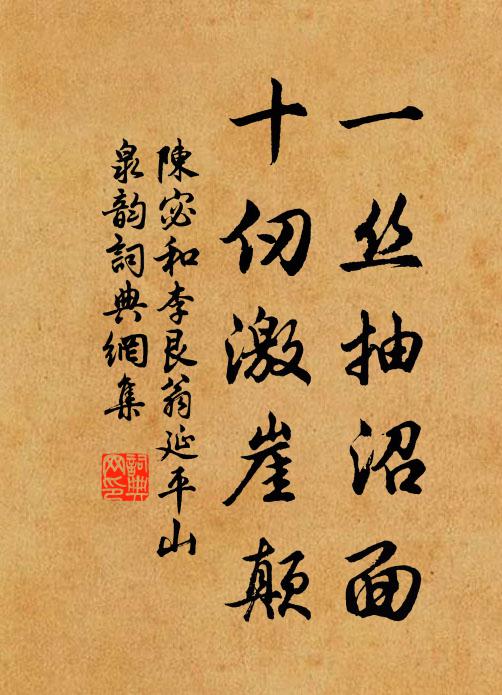 一丝抽沼面
十仞激崖颠
陳宓和李艮翁延平山
泉韵詞典網集
詞典
网印